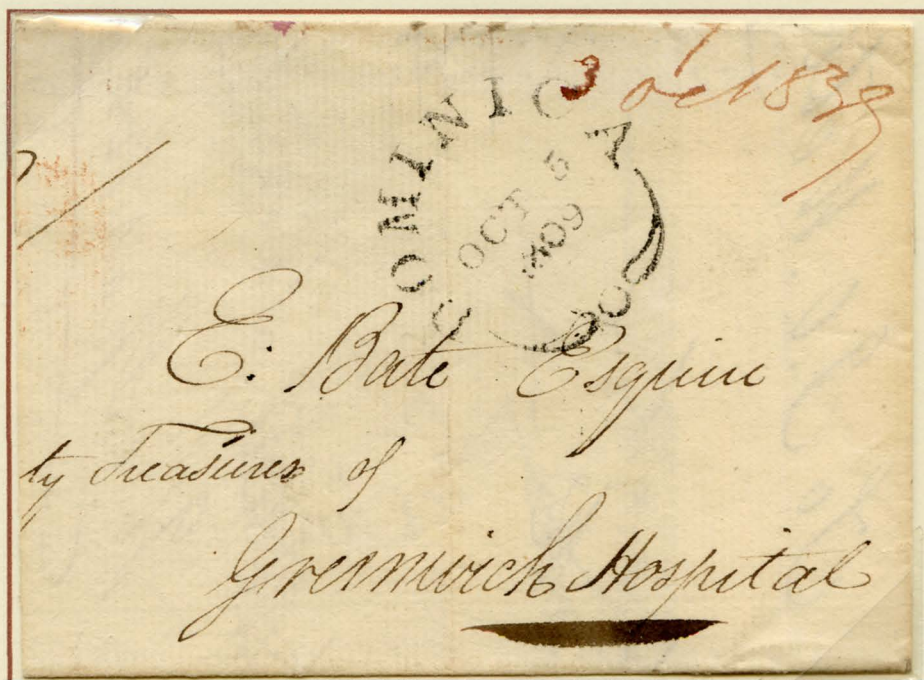 DOMINICA
OCT 5
1809
E. Bate Esquire
ty Treasurer of
Greenwich Hospital